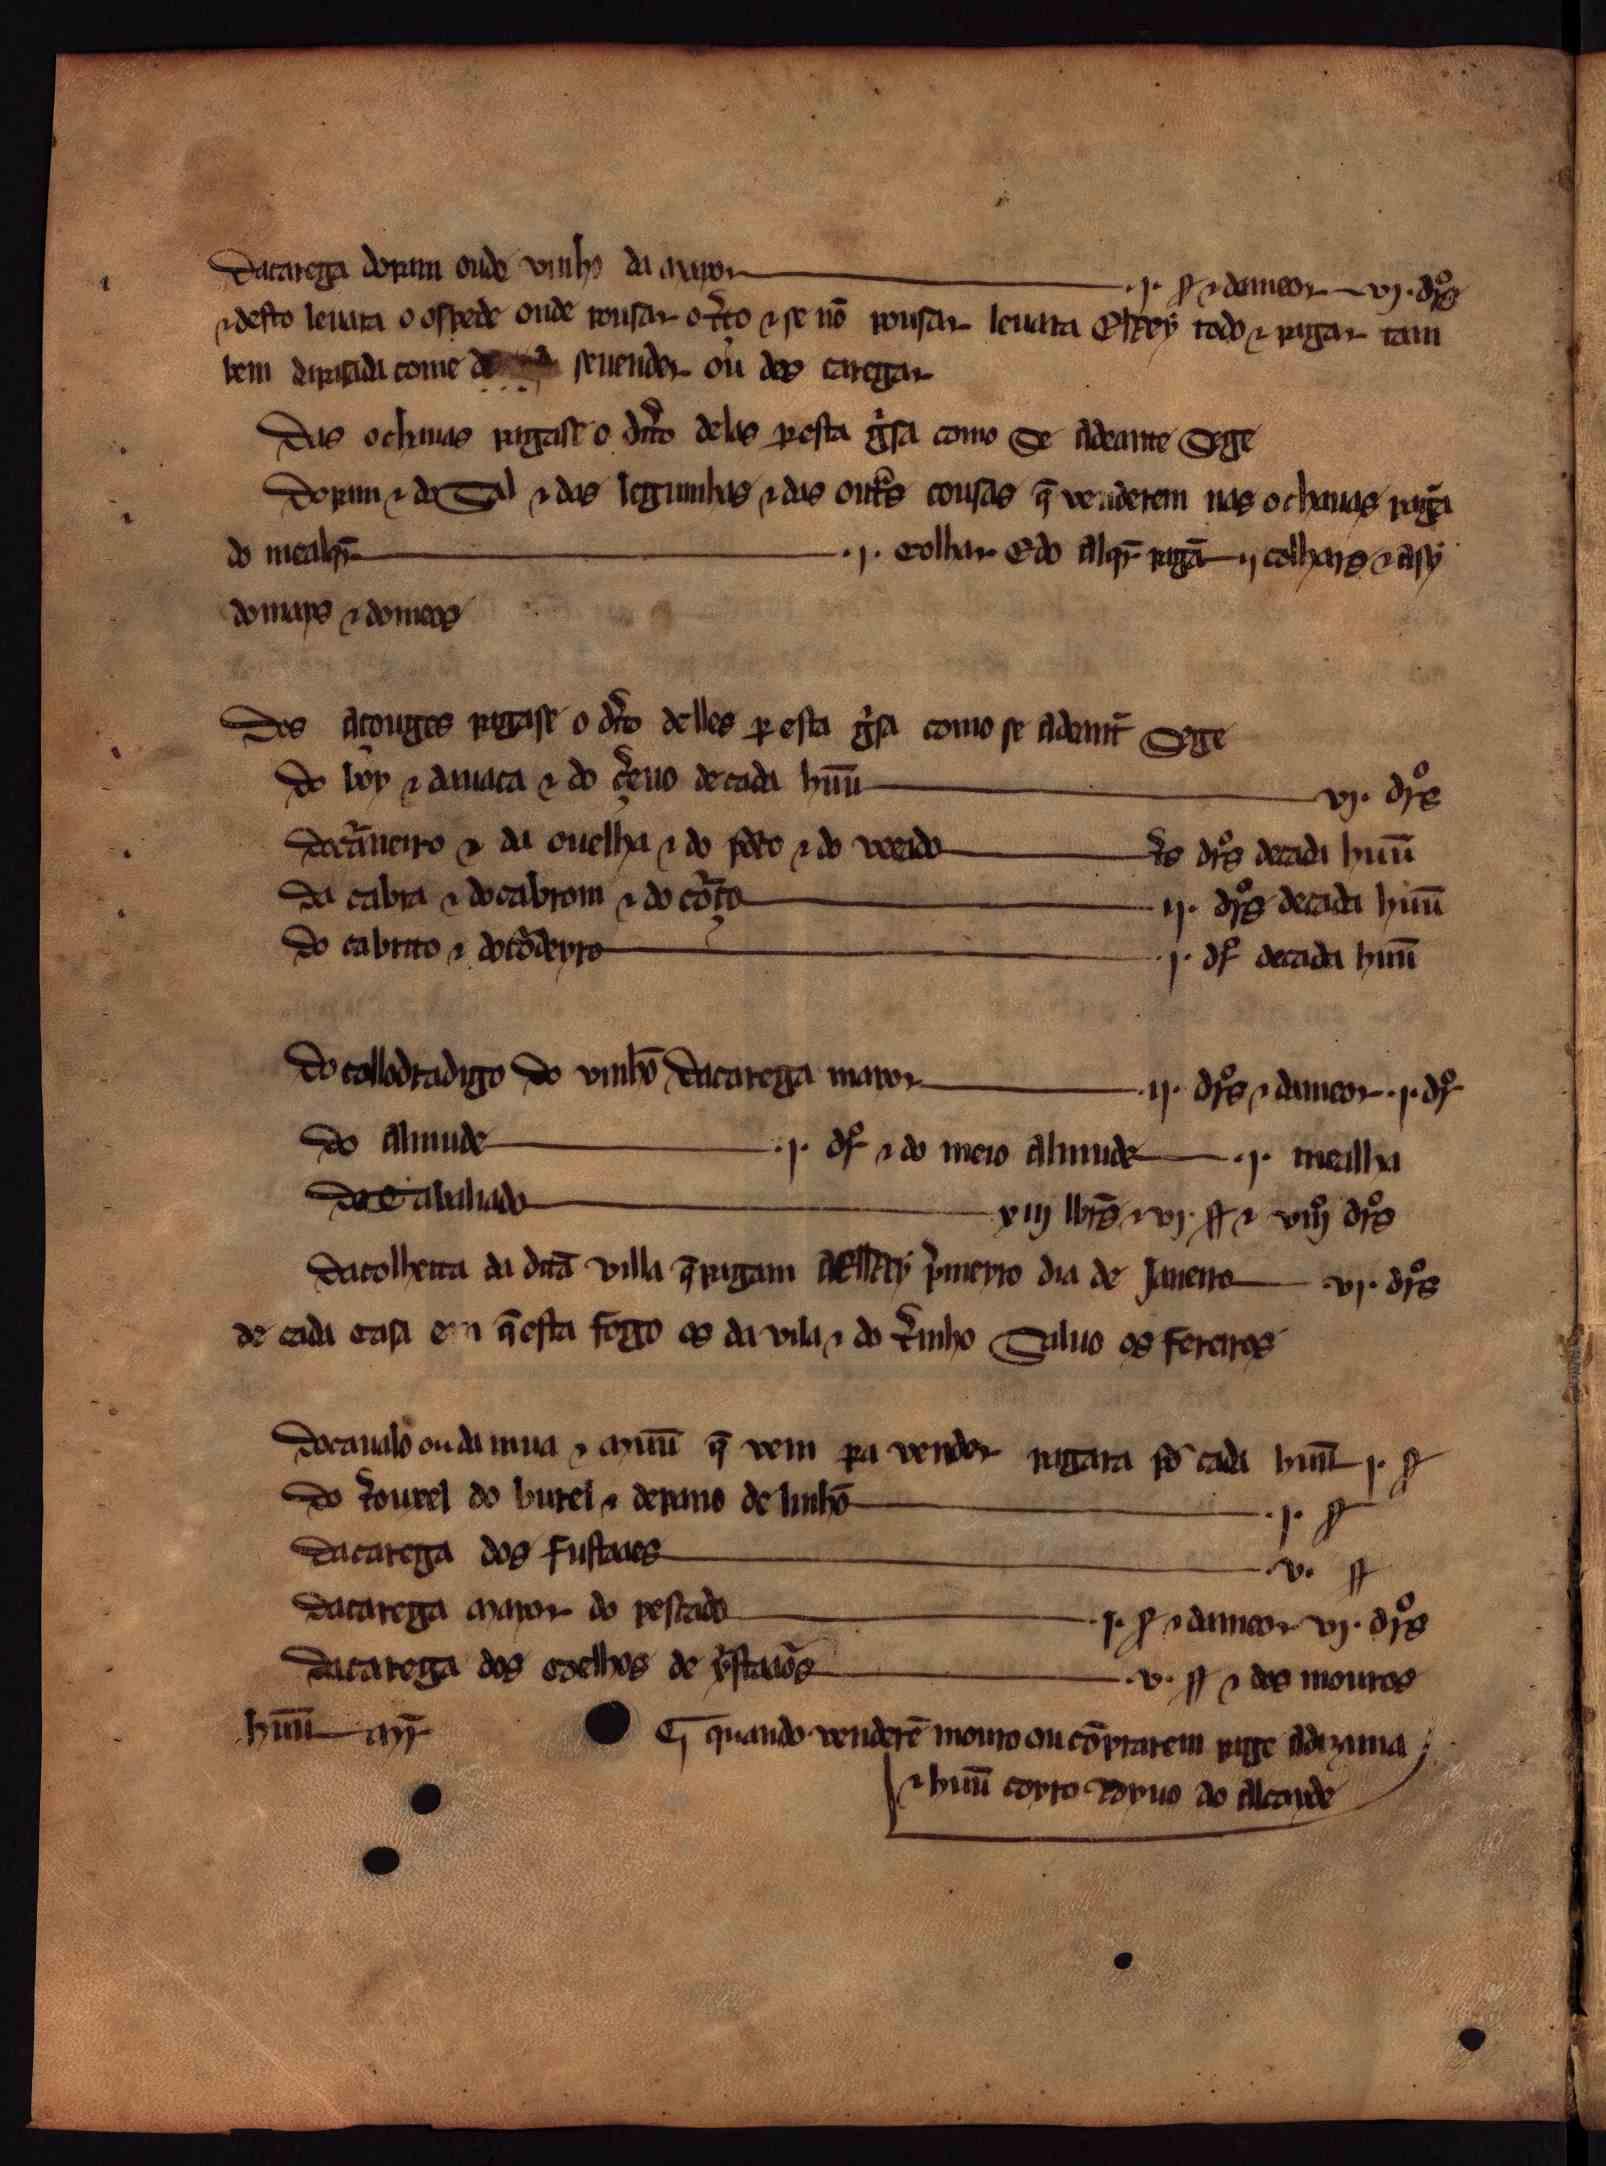 Dacarega dopam oude vinho da mayor .j. ß ⁊ dameor vj. drſ
⁊ desto leuara o ospede onde pousar o t̾ço ⁊ se nõ pousar leuara Elrrey todo ⁊ pagar tam
bem da pasada come de se uender ou des caregar
Das ochauas pagase o dr̃to delas per esta g̾sa como Se Adeante Sege
Do pam ⁊ do Sal ⁊ das legumhas ⁊ das out̃s cousas q̃ venderem nas ochauas pagã
do mealqr̃ .j. Colhar E do Alqr̃ pagã ij colhars ⁊ Asy
do mays ⁊ do meos
Dos Acouges pagase o dr̃to delles per esta g̾sa como se Adeant̃ Sege
Do boy ⁊ da uaca ⁊ do çeruo de cada hũu vj. drſ
do carneiro ⁊ da ouelha ⁊ do porco ⁊ do veado t̃s drſ de cada hũu
da cabra ⁊ do cabrom ⁊ do corço ij. drſ de cada hũu
do cabrito ⁊ do cordeyro .j. dr̃ de cada hũu
Do collodradigo do vinhõ Da carega mayor .ij. drſ ⁊ da meor .j. dr̃
do Almude .j. dr̃ ⁊ do meio Almude .j. mealha
do Tabaliado xiij lbrs̃ ⁊ vj. ßß ⁊ viijº drſ
Da colheita da dita villa q̃ pagam A ElRrey p̾meyro dia de Janeiro vj. drſ
de cada casa em q̃ esta fogo os da vila ⁊ do t̾minho Saluo os fereiros
Do caualo ou da mua ⁊ muu q̃ vem pera vender pagara por cada hũu j. ß
do t̾ourel do burel ⁊ de pano de linhõ .j. ß
da carega dos fustaaes .v. ßß
da carega mayor do pescado .j. ß ⁊ da meor vj. drſ
da carega dos coelhos de ⁊ dos mouros .v. ßß
hũu mr̃ ¶ quando venderẽ mouro ou cõprarem page A dizima
⁊ hũu ao Alcayde